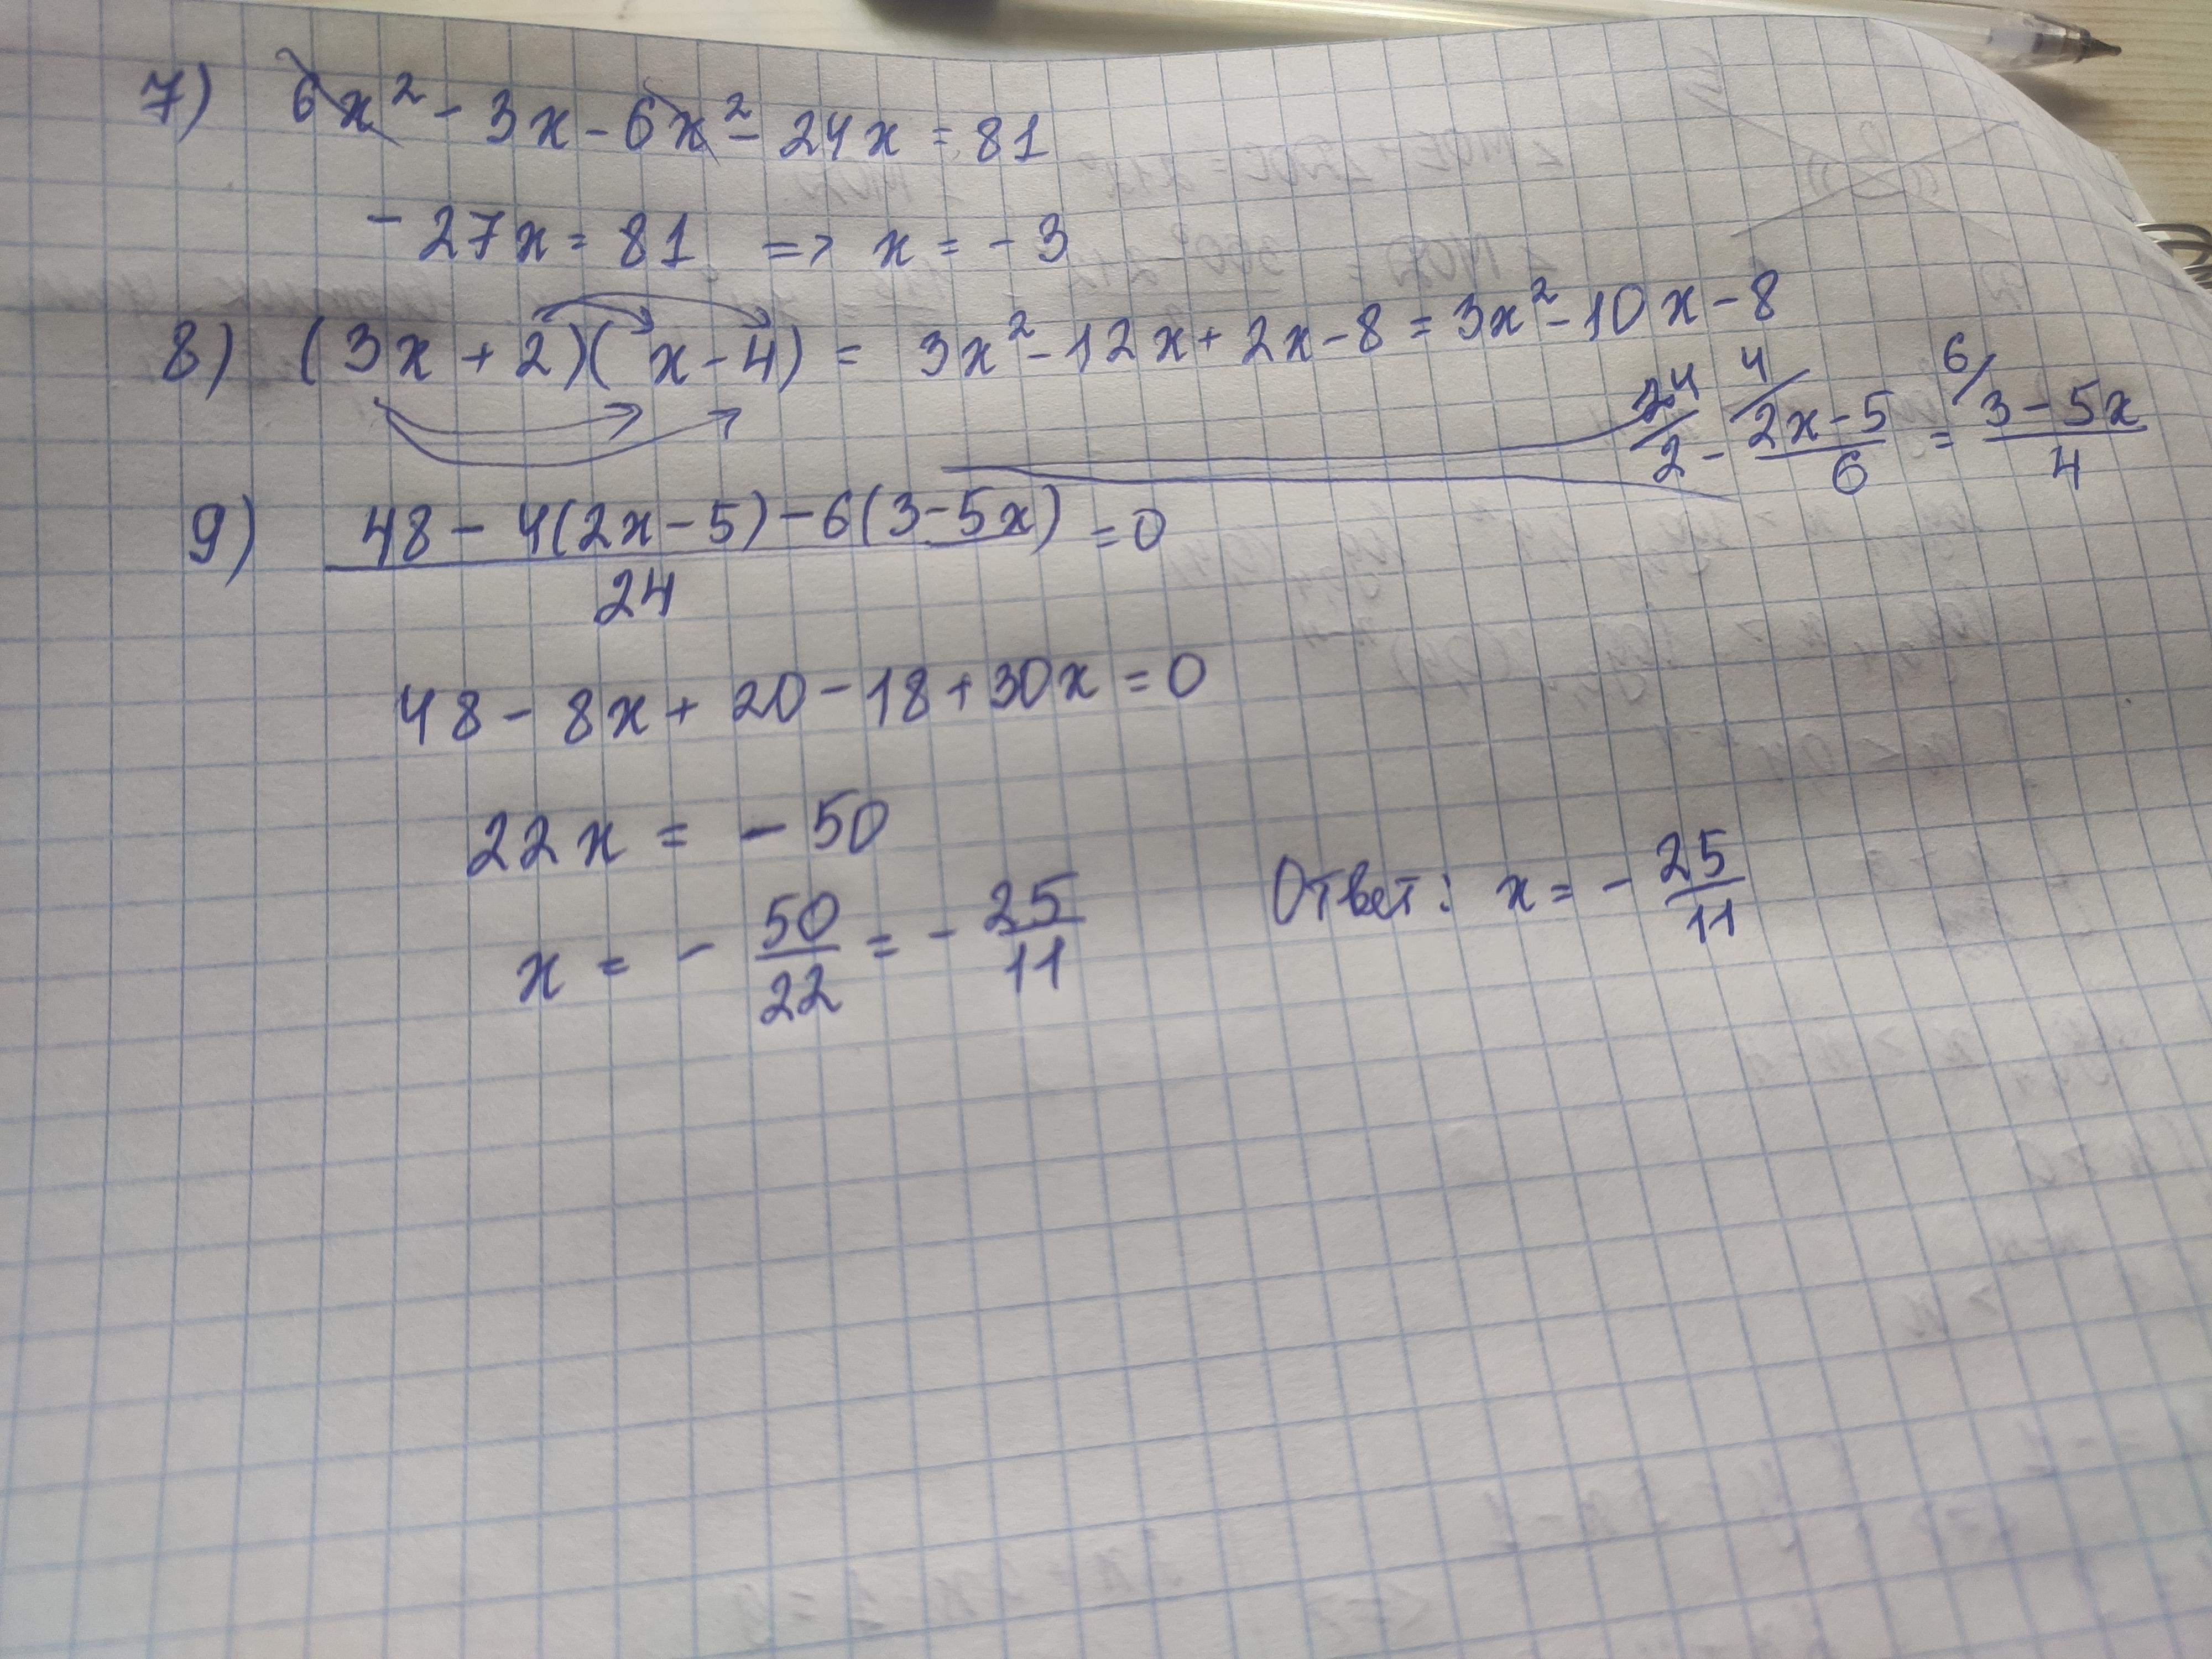 7) 6x² - 3x - 6x² - 24x = 81
- 27x = 81 => x = - 3
8) (3x + 2)(x - 4) = 3x² - 12x + 2x - 8 = 3x² - 10x - 8
24/ 4/ 6/
2 - (2x - 5)/6 = (3 - 5x)/4
9) (48 - 4(2x - 5) - 6(3 - 5x))/24 = 0
48 - 8x + 20 - 18 + 30x = 0
22x = - 50
x = - 50/22 = - 25/11 Ответ: x = - 25/11